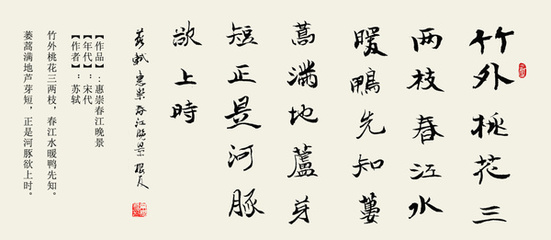 竹外桃花三
两枝春江水
暖鴨先知蔞
蒿滿地蘆芽
短正是河豚
欲上時
蘇軾惠崇春江晚景
【作品】:惠崇春江晚景
【年代】:宋代
【作者】:苏轼
竹外桃花三两枝，春江水暖鸭先知。
蒌蒿满地芦芽短，正是河豚欲上时。